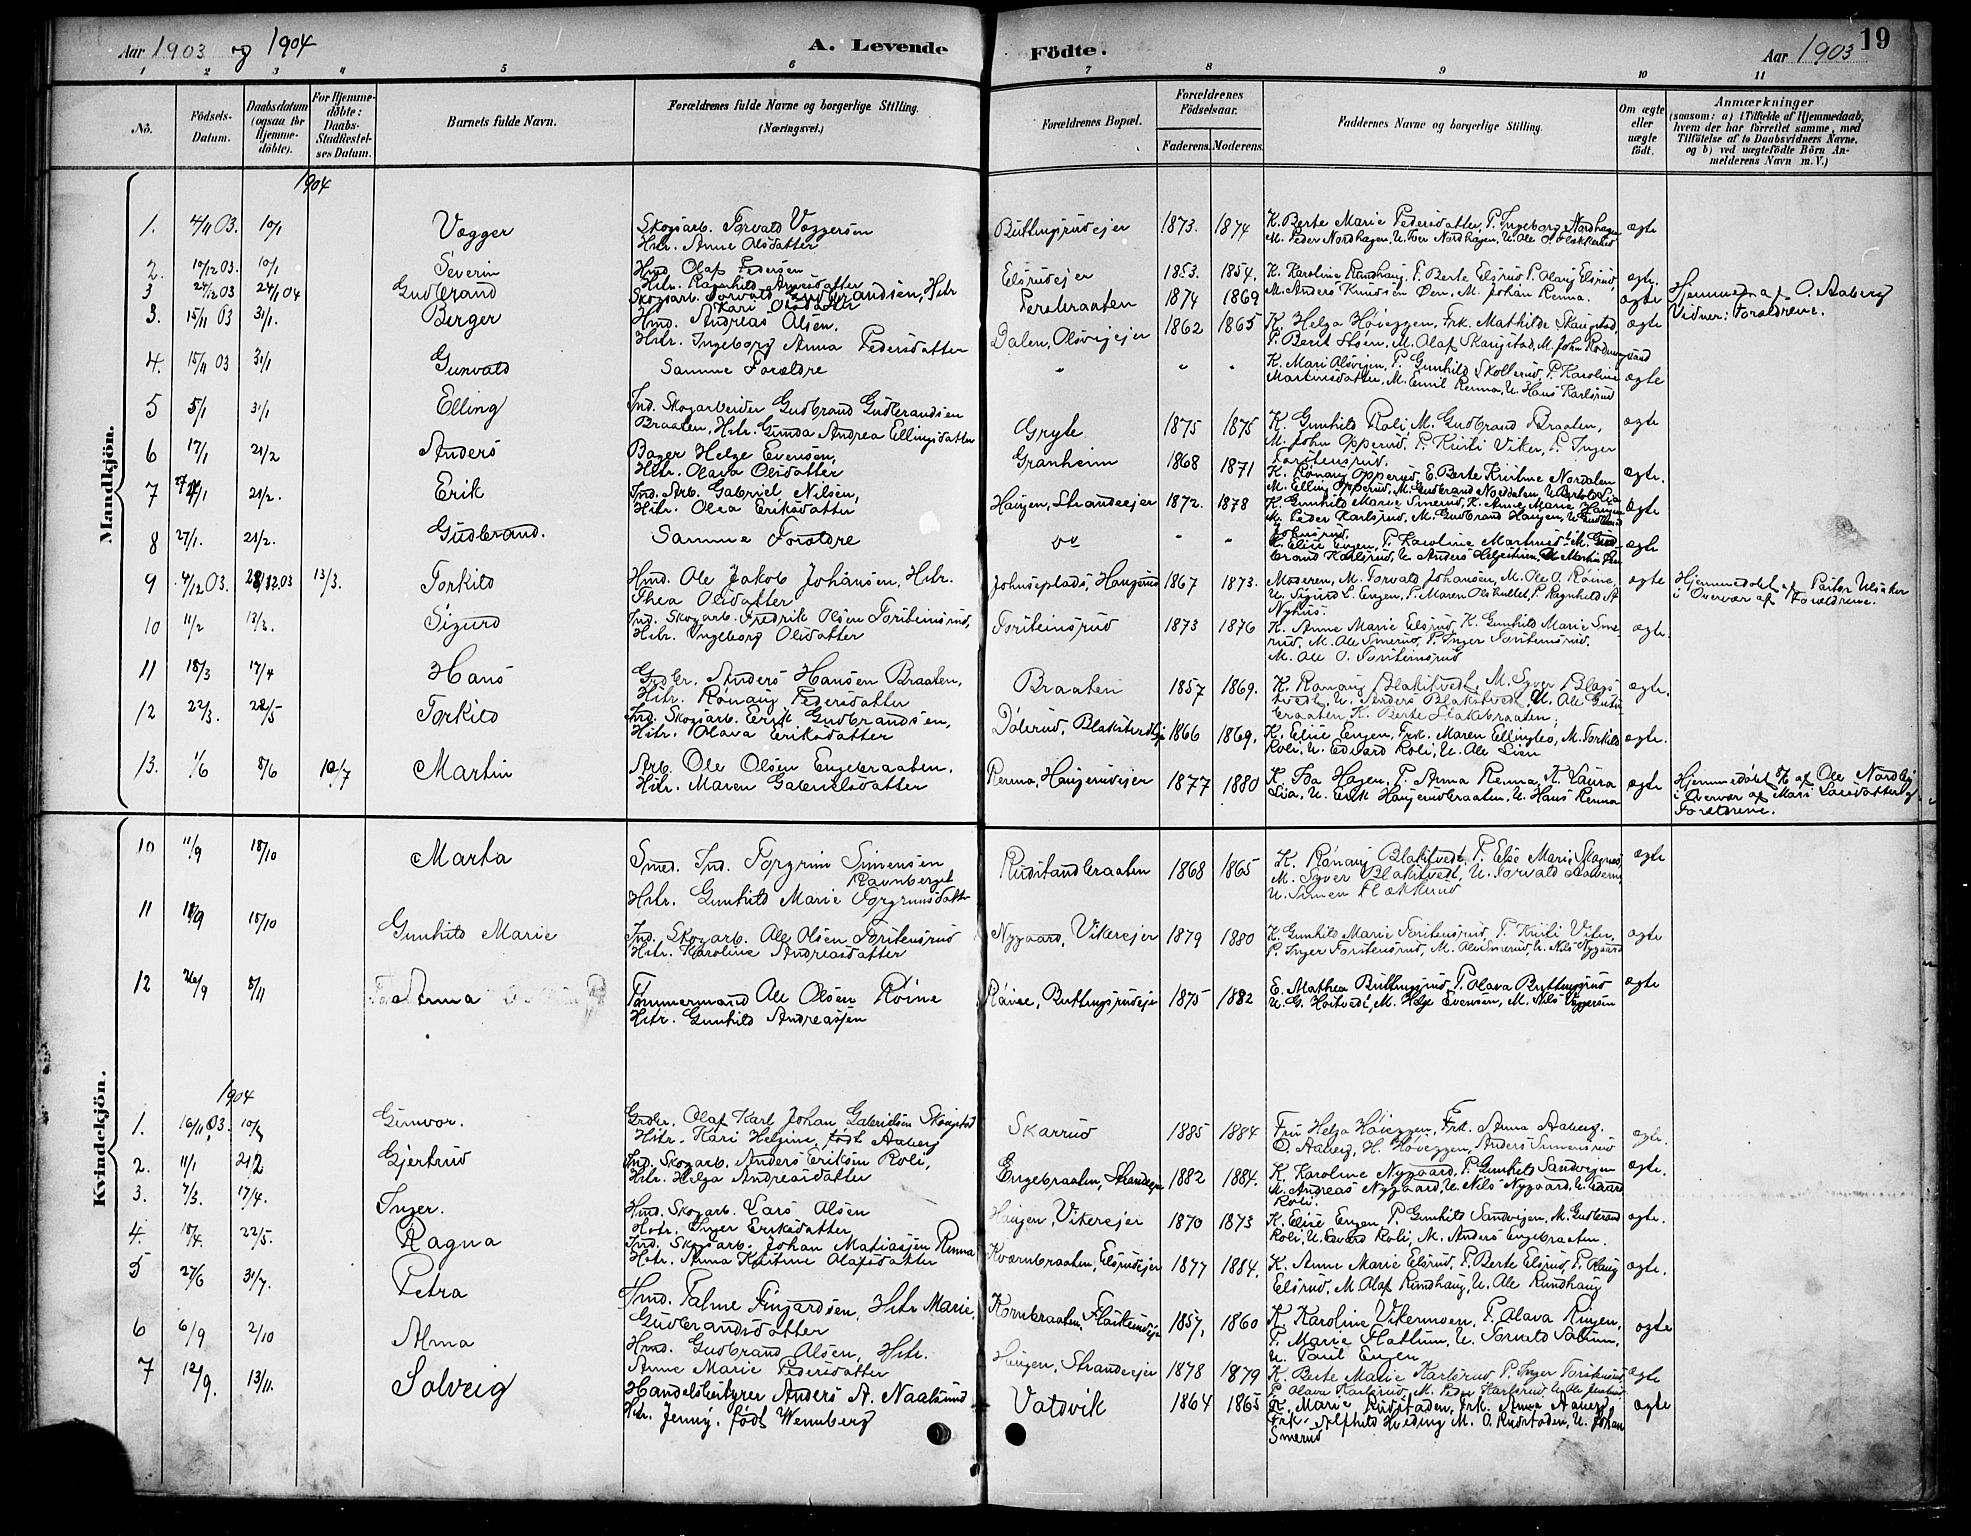 Aar 1903 og 1904
A. Levende Födte.
Aar 1903
19
1 2 3 4 5 6 7 8 9 10 11
No.
Födsels-Datum.
Daabsdatum (ogsaa for Hjemmedöbte).
For Hjemmedöbte: Daabs-Stadfæstelses Datum.
Barnets fulde Navn.
Forældrenes fulde Navne og borgerlige Stilling. (Næringsvei.)
Forældrenes Bopæl.
Forældrenes Födselsaar.
Faderens. Moderens.
Faddernes Navne og borgerlige Stilling.
Om ægte eller uægte födt.
Anmærkninger
(saasom: a) i Tilfælde af Hjemmedaab, hvem der har forrettet samme, med Tilföielse af to Daabsvidners Navne, og b) ved uægtefödte Börn Anmelderens Navn m. V.)
Mandkjön.
1904
1. 4/11 03. 10/1 Vegger Skogsarb. Torvald Veggersen Hstr. Anne Olsdatter Buttingsrudejer 1873. 1874 K. Berte Marie Pedersdatter, P. Ingeborg Nordhagen M. Peder Nordhagen, U. Iver Nordhagen, U. Ole O. ægte
2. 10/12 03. 10/1 Severin Hmd. Olaf Pedersen Hstr. Ragnhild Arnesdatter Elsrudejer 1853. 1854. K. Karoline Rundhaug, P. Berte Elsrud, P. Olaug Elsrud, M. Anders Knudsen Øen, M. Johan Renna. ægte.
3 27/12 03 24/1 04 Gudbrand Skogsarb. Torvald Gudbrandsen, Hstr Kari Olsdatter 1874 1869 ægte Hjemmed. af O. Aaberg Vidner: Forældrene.
3. 15/11 03 31/1. Berger Hmd. Andreas Olsen, Hstr. Ingeborg Anna Pedersdatter Dalen, Olsviejejer 1862 1865 K. Helga Høieggen, Frk. Mathilde Skaugstad, P. Berit Støen, M. Olaf Skaugstad, M. John ægte
4. 15/11 03 31/1 Gunvald Samme Forældre " " " K. Mari Olsvigen, P. Gunhild Skollerud, P. Karoline Martinsdatter, M. Emil Renna, U. Hans Karlsrud ægte
5 5/1 31/1 Elling Ind. Skogarbeider Gudbrand Gudbrandsen Braaten, Hstr. Gunda Andrea Ellingsdatter Gryte 1875 1875 K. Gunhild Roli M. Gudbrand Braaten, M. John Opperud, P. Kristi Viker, P. Inger Torstensrud. ægte
6 17/1 21/2 Anders Bager Helge Evensen, Hstr. Olava Olsdatter Granheim 1868 1871 K. Rønaug Opperud, E. Berte Kristine Nordalen M. Elling Opperud, M. Gudbrand Nordalen, U. Bertold Lia ægte.
7 27/1 21/2. Erik Ind. Arb. Gabriel Nilsen, Hstr. Olea Eriksdatter Haugen, Strandeejer 1872. 1878 K. Gunhild Marie Smerud, K. Anne Marie Haugen M. Peder Karlsrud, M. Gudbrand Haugen, U. Gudbrand Johnsrud. ægte
8 27/1. 21/2. Gudbrand. Samme Forældre " " K. Elise Engen, P. Karoline Martinsd. M. Gudbrand Karlsrud, U. Anders Helgestuen, ægte
9 4/12 03. 28/12.03 13/3. Torkild Hmd. Ole Jakob Johansen, Hstr. Thea Olsdatter Johnseplads, Haugerud 1867 1873. Moderen, M. Torvald Johansen, M. Ole O. Røine, U. Sigurd L. Engen, P. Maren Olshullet, P. Ragnhild A Nyhus. ægte Hjemmedøbt af Pastor Ulsaker i Overvær af Forældrene.
10 11/2 13/3. Sigurd Ind. Skogarb. Fredrik Olsen Torsteinsrud, Hstr. Ingeborg Olsdatter Torsteinsrud 1873 1876 K. Anne Marie Elsrud, K. Gunhild Marie Smerud, M. Ole Smerud, P. Inger Torstensrud. M. Ole O. Torsteinsrud ægte.
11 18/3 17/4 Hans Grdbr. Anders Hansen Braaten, Hstr. Rønaug Pedersdatter Braaten 1857 1869. K. Rønaug Blakstvedt, M. Syver Blakstvedt, U. Anders Blakstvedt, U. Ole K. Berte ægte.
12 22/3. 22/5 Torkild Ind. Skogsarb. Erik Gudbrandsen, Hstr. Olava Eriksdatter Dølerud, 1866 1869. K. Elise Engen, Frk. Maren Ellingbø, M. Torkild Roli, U. Edvard Roli, U. Ole Lien ægte.
13. 1/6 8/6 10/7 Martin Arb. Ole Olsen Engebraaten, Hstr. Maren Gabrielsdatter Renna, Haugerudejer 1877 1880 K. Ida Hagen, P. Anna Renna, K. Laura Lia, U. Erik Haugerudbraaten, U. Hans Renna ægte Hjemmedøbt 8/6 af Ole Nordby i Overvær af Mari Larsdatter og Forældrene.
Kvindekjön.
10 11/9 18/10 Marta Smed. Ind. Torgrim Simensen Ravnberget Hstr. Gunhild Marie Torgrimsdatter Rudstandbraaten 1868 1865 K. Rønaug Blakstvedt, P. Else Marie Skagnes, M. Syver Blakstvedt, U. Torvald U. Simen Flækkerud ægte
11 18/9 18/10 Gunhild Marie Ind. Skogarb. Ole Olsen Torstensrud Hstr. Karoline Andreasdatter Nygaard, Vikerejer 1879 1880 K. Gunhild Marie Torstensrud, P. Kristi Viker, P. Inger Torstensrud, M. Ole Smerud, U. Nils Nygaard ægte
12 26/9 8/11 Anna Tømmermand Ole Olsen Røine Hstr. Gunhild Andreassen Røine, Buttingsrudeje 1875 1882 E. Mathea Buttingsrud, P. Olava Buttingsrud U. G. Hoitvedt, M. Helge Evensen, M. Nils Veggersen ægte
1904
1. 16/11 03. 10/1 Gunvor. Grdbr. Olaf Karl Johan Gabrielsen Skaugstad Hstr. Kari Helgine, født Aaberg Skarrud 1885 1884 Fru Helga Høieggen, Frk. Anna Aaberg, O. Aaberg, H. Høieggen, Anders Simensrud ægte.
2. 11/1 21/2 Gjertrud Ind. Skogarb. Anders Eriksen Roli, Hstr. Helga Andreasdatter Engebraaten, Strandeejer 1882 1884. K. Karoline Nygaard, P. Gunhild Sandvigen M. Andreas Nygaard, U. Nils Nygaard, U. Edvard Roli. ægte.
3. 7/3. 17/4. Inger. Hmd. Skogarb. Lars Olsen Hstr. Inger Eriksdatter Haugen, Vikerejer 1870 1873 K. Elise Engen, P. Gunhild Sandvigen, M. Gudbrand Roli, U. Edvard Roli, M. Anders Engebraaten. ægte.
4. 18/4. 22/5. Ragna Ind. Skogarb. Johan Mathiassen Renna Hstr. Anna Kristine Olafsdatter Kværnbraaten, Elsrudejer 1877 1884. K. Anne Marie Elsrud, P. Berte Elsrud, P. Olaug Elsrud, M. Olaf Rundhaug, U. Ole Rundhaug ægte.
5 27/6 31/7. Petra Hmd. Palme Fingardsen, Hstr Marie Gudbrandsdatter Kornbraaten, 1857, 1860 K. Karoline Vikermoen, P. Olava Ringen, P. Marie Flattum, U. Torvald U. Paul Engen ægte
6 6/9 2/10 Alma Hmd. Gudbrand Olsen, Hstr. Anne Marie Pedersdatter Haugen, Strandeejer 1878 1879 K. Berte Marie Karlsrud, P. Inger Torstensrud P. Olava Karlsrud, M. Peder Karlsrud, U. Ole ægte
7 12/9. 13/11. Solveig Handelsbestyrer Anders A. Naalsund Hstr. Jenny, født Wennberg Vatsvik 1864 1865 K. Marie Rudstaden, Frk. Anna Aaberg, Frk. Alfhild Hvieding M. O. Rudstaden, U. Johan Smerud ægte